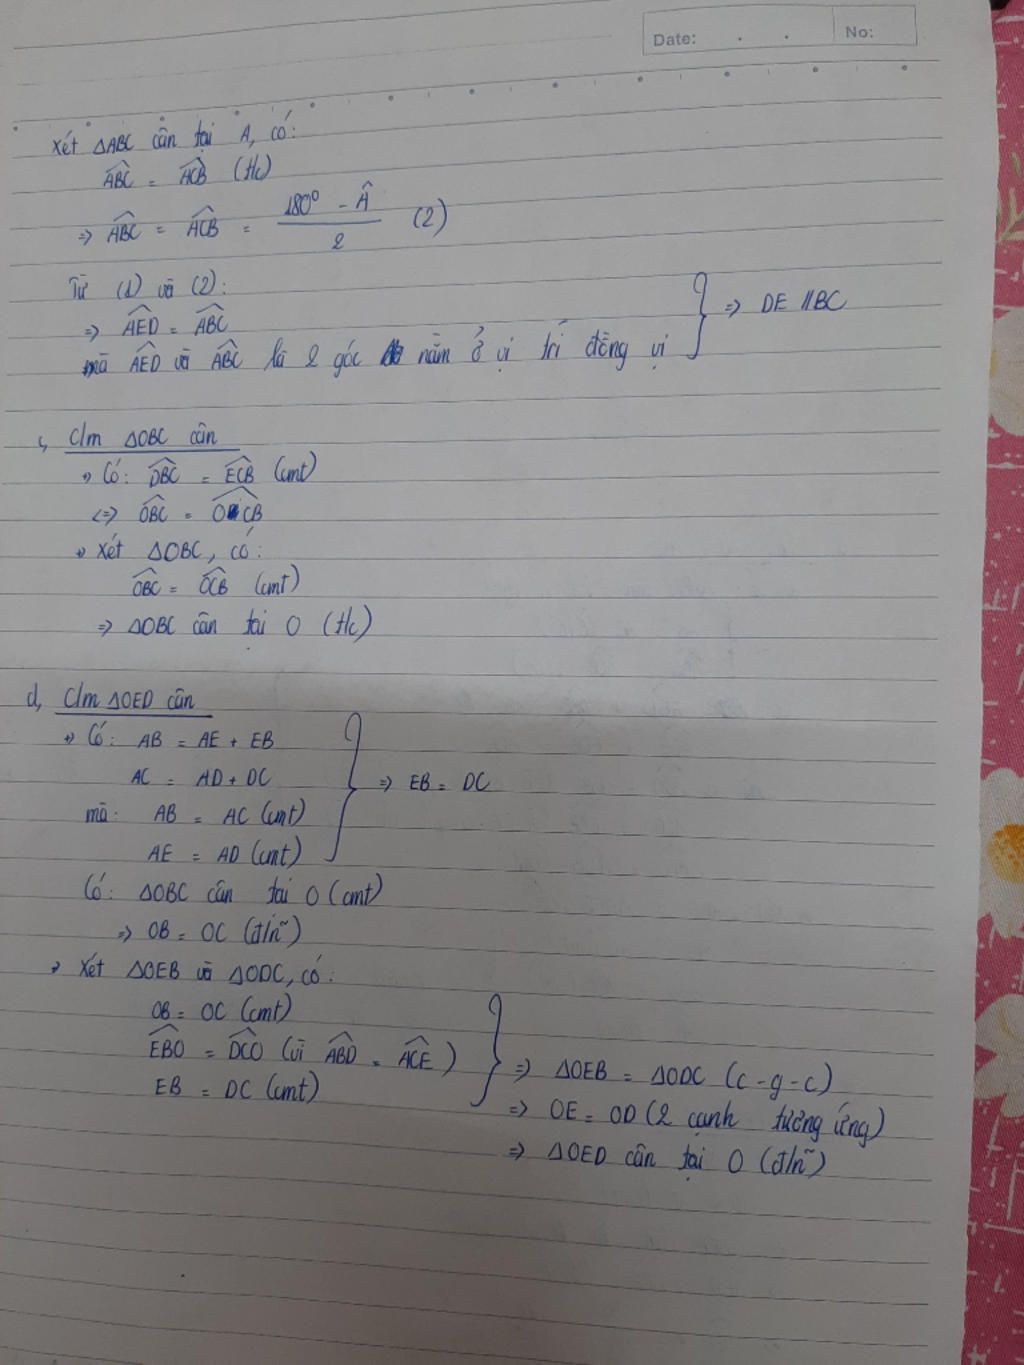 Date: . . No:
Xét ΔABC cân tại A, có:
ABĈ = ACB̂ (t/c)
=> ABĈ = ACB̂ = (180° - Â)/2 (2)
Từ (1) và (2):
=> AED̂ = ABĈ
mà AED̂ và ABĈ là 2 góc nằm ở vị trí đồng vị } => DE // BC
c, C/m ΔOBC cân
Có: DBĈ = ECB̂ (cmt)
<=> OBĈ = OCB̂
Xét ΔOBC, có:
OBĈ = OCB̂ (cmt)
=> ΔOBC cân tại O (t/c)
d, C/m ΔOED cân
Có: AB = AE + EB
AC = AD + DC } => EB = DC
mà: AB = AC (cmt)
AE = AD (cmt)
Có: ΔOBC cân tại O (cmt)
=> OB = OC (đ/n~)
Xét ΔOEB và ΔODC, có:
OB = OC (cmt)
EBÔ = DCÔ (vì ABD̂ = ACÊ)
EB = DC (cmt)
} => ΔOEB = ΔODC (c-g-c)
=> OE = OD (2 cạnh tương ứng)
=> ΔOED cân tại O (đ/n~)